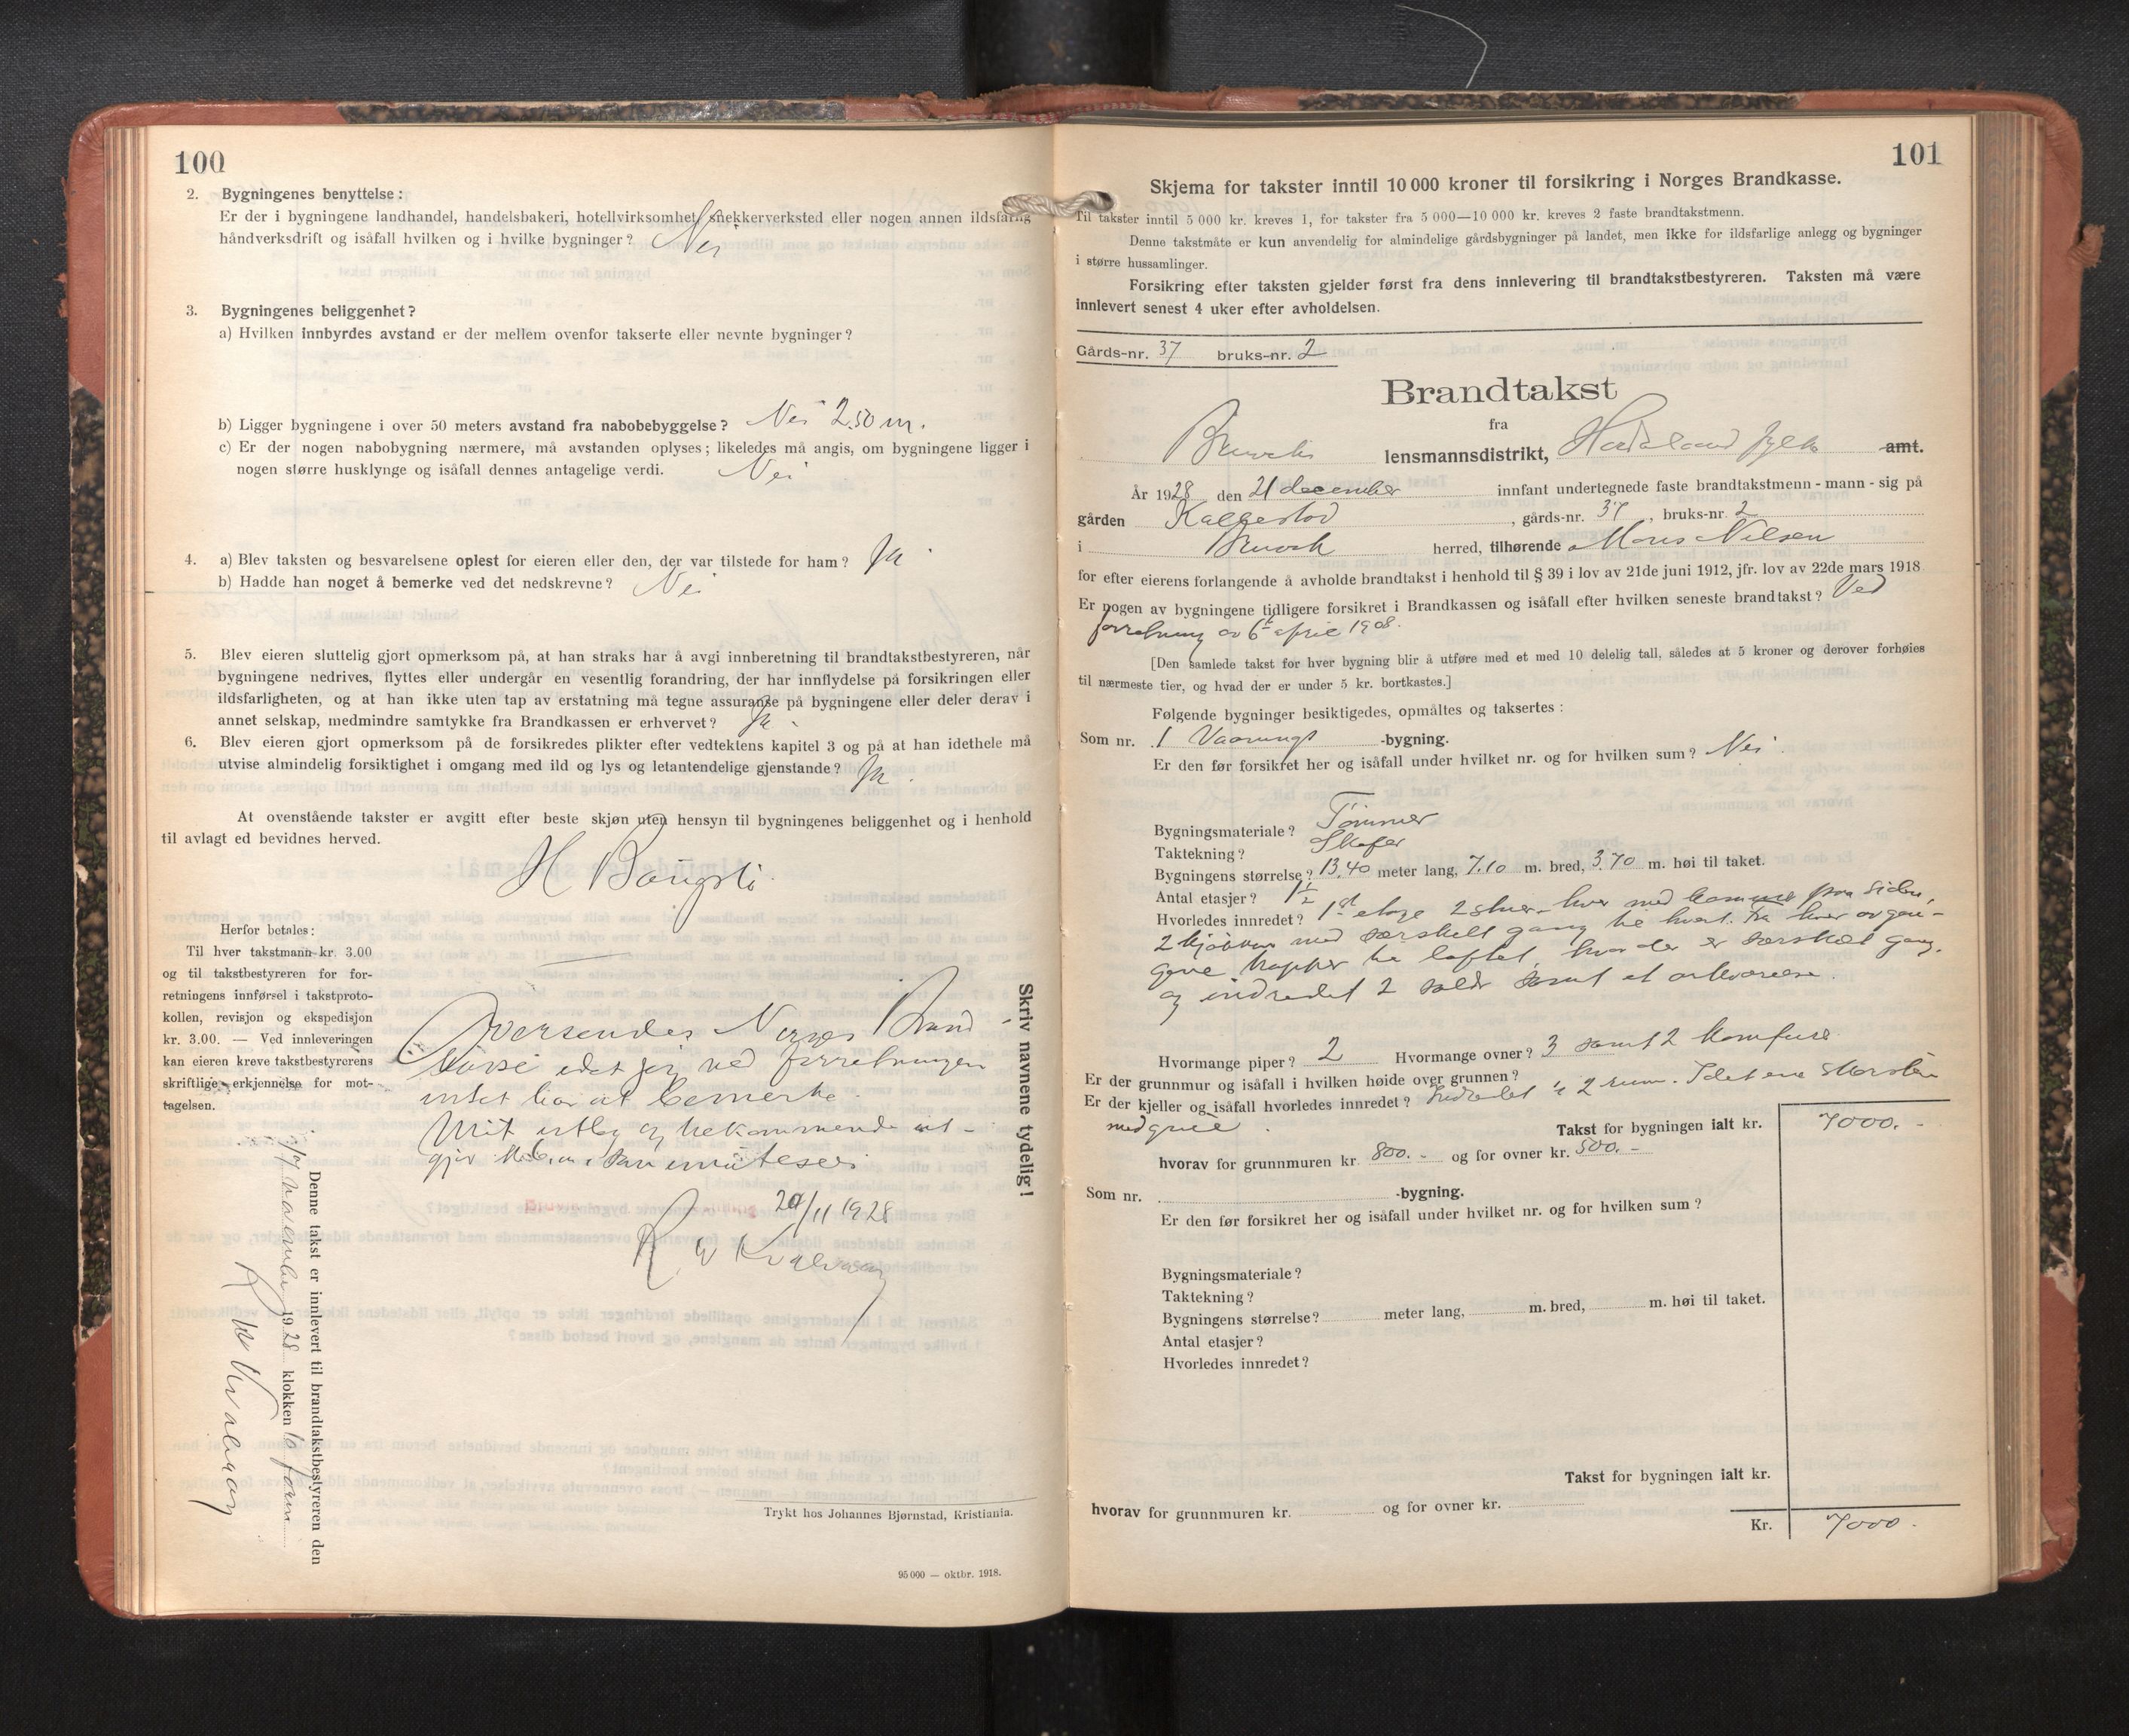 100
2. Bygningenes benyttelse:
Er der i bygningene landhandel, handelsbakeri, hotellvirksomhet, snekkerverksted eller nogen annen ildsfarlig
håndverksdrift og isåfall hvilken og i hvilke bygninger? Nei
3. Bygningenes beliggenhet?
a) Hvilken innbyrdes avstand er der mellem ovenfor takserte eller nevnte bygninger?
b) Ligger bygningene i over 50 meters avstand fra nabobebyggelse? Nei 2.50 m.
c) Er der nogen nabobygning nærmere, må avstanden oplyses; likeledes må angis, om bygningene ligger i
nogen større husklynge og isåfall dennes antagelige verdi. Nei
4. a) Blev taksten og besvarelsene oplest for eieren eller den, der var tilstede for ham? Ja
b) Hadde han noget å bemerke ved det nedskrevne? Nei
5. Blev eieren sluttelig gjort opmerksom på, at han straks har å avgi innberetning til brandtakstbestyreren, når
bygningene nedrives, flyttes eller undergår en vesentlig forandring, der har innflydelse på forsikringen eller
ildsfarligheten, og at han ikke uten tap av erstatning må tegne assuranse på bygningene eller deler derav i
annet selskap, medmindre samtykke fra Brandkassen er erhvervet? Ja
6. Blev eieren gjort opmerksom på de forsikredes plikter efter vedtektens kapitel 3 og på at han idethele må
utvise almindelig forsiktighet i omgang med ild og lys og letantendelige gjenstande? Ja.
At ovenstående takster er avgitt efter beste skjøn uten hensyn til bygningenes beliggenhet og i henhold
til avlagt ed bevidnes herved.
H
Herfor betales:
Til hver takstmann kr. 3.00
og til takstbestyreren for for-
retningens innførsel i takstproto-
kollen, revisjon og ekspedisjon
kr. 3.00. — Ved innleveringen
kan eieren kreve takstbestyrerens
skriftlige erkjennelse for mot-
tagelsen.
Oversendes Norges Brand-
idet jeg ved forretningen
intet har at bemerke.
Mit utlæg
29/11 1928
R W Kvalvaag
Skriv navnene tydelig!
Denne takst er innlevert til brandtakstbestyreren den
november 1928 klokken 10 form
R W Kvalvaag
Trykt hos Johannes Bjørnstad, Kristiania.
95 000 — oktbr. 1918.
101
Skjema for takster inntil 10 000 kroner til forsikring i Norges Brandkasse.
Til takster inntil 5 000 kr. kreves 1, for takster fra 5 000—10 000 kr. kreves 2 faste brandtakstmenn.
Denne takstmåte er kun anvendelig for almindelige gårdsbygninger på landet, men ikke for ildsfarlige anlegg og bygninger
i større hussamlinger.
Forsikring efter taksten gjelder først fra dens innlevering til brandtakstbestyreren. Taksten må være
innlevert senest 4 uker efter avholdelsen.
Gårds-nr. 37 bruks-nr. 2
Brandtakst
fra
lensmannsdistrikt, Hordaland fylke amt.
År 1928 den 21 december innfant undertegnede faste brandtakstmenn - mann - sig på
gården Kallestad, gårds-nr. 37, bruks-nr. 2
i Bruvik herred, tilhørende Mons Nilsen
for efter eierens forlangende å avholde brandtakst i henhold til § 39 i lov av 21de juni 1912, jfr. lov av 22de mars 1918
Er nogen av bygningene tidligere forsikret i Brandkassen og isåfall efter hvilken seneste brandtakst? Ved
forretning av 6te april 1908.
[Den samlede takst for hver bygning blir å utføre med et med 10 delelig tall, således at 5 kroner og derover forhøies
til nærmeste tier, og hvad der er under 5 kr. bortkastes.]
Følgende bygninger besiktigedes, opmåltes og taksertes:
Som nr. 1 Vaanings -bygning.
Er den før forsikret her og isåfall under hvilket nr. og for hvilken sum? Nei
Bygningsmateriale? Tømmer
Taktekning? Skifer
Bygningens størrelse? 13,40 meter lang, 7.10 m. bred, 3.70 m. høi til taket.
Antal etasjer? 1 1/2
Hvorledes innredet? 1st etage 2 stuer hver med kammer paa siden,
2 kjøkken med særskilt gang til hvert. Fra hver av gan-
gene trapper til loftet, hvor der er særskilt gang,
og indredet 2 samt et arkværelse.
Hvormange piper? 2 Hvormange ovner? 3 samt 2 komfurer
Er der grunnmur og isåfall i hvilken høide over grunnen?
Er der kjeller og isåfall hvorledes innredet? Indredet i 2 rum. I det ene skorsten
med grue.
Takst for bygningen ialt kr. 7000.-
hvorav for grunnmuren kr. 800.- og for ovner kr. 500.-
Som nr. -bygning.
Er den før forsikret her og isåfall under hvilket nr. og for hvilken sum?
Bygningsmateriale?
Taktekning?
Bygningens størrelse? meter lang, m. bred, m. høi til taket.
Antal etasjer?
Hvorledes innredet?
Takst for bygningen ialt kr.
hvorav for grunnmuren kr. og for ovner kr.
Kr. 7000.-